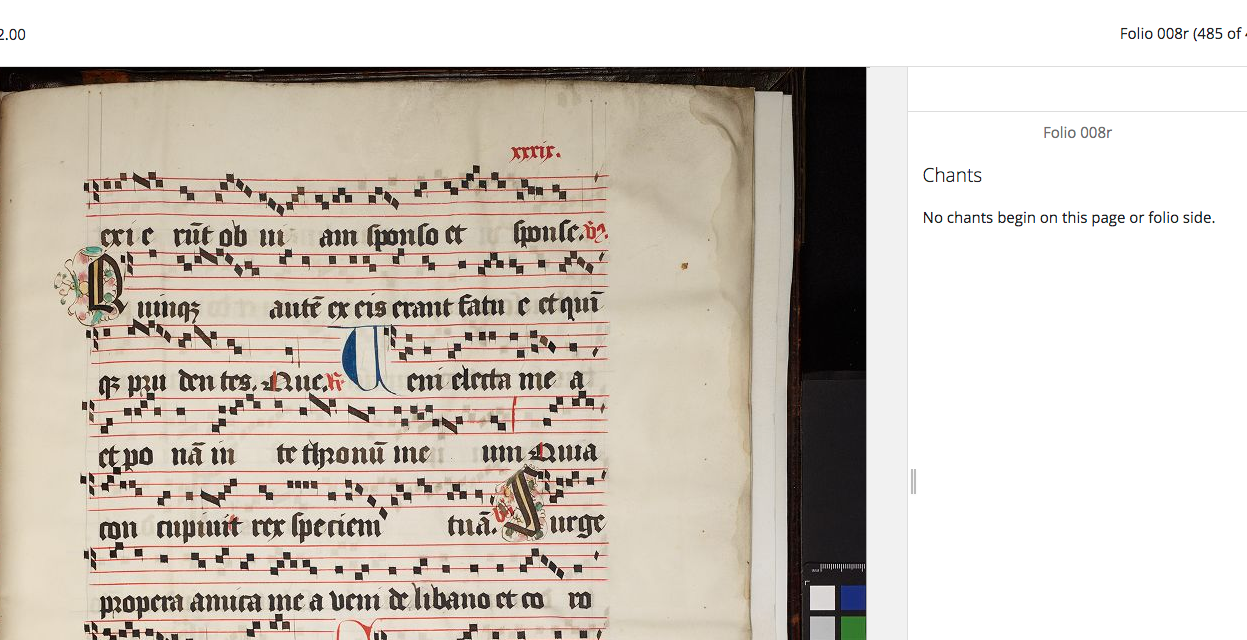 2.00
Folio 008r (485 of
Folio 008r
Chants
No chants begin on this page or folio side.
xxxix.
exi e rūt ob ui am sponso et sponse. v̄.
Quinqꝫ autē ex eis erant fatu e et qui̅
qꝫ pru den tes. Que. R̄ Ueni electa me a
et po nā in te thronū me um Quia
con cupiuit rex speciem tuā. v̄. Surge
propera amica me a veni de libano et co ro